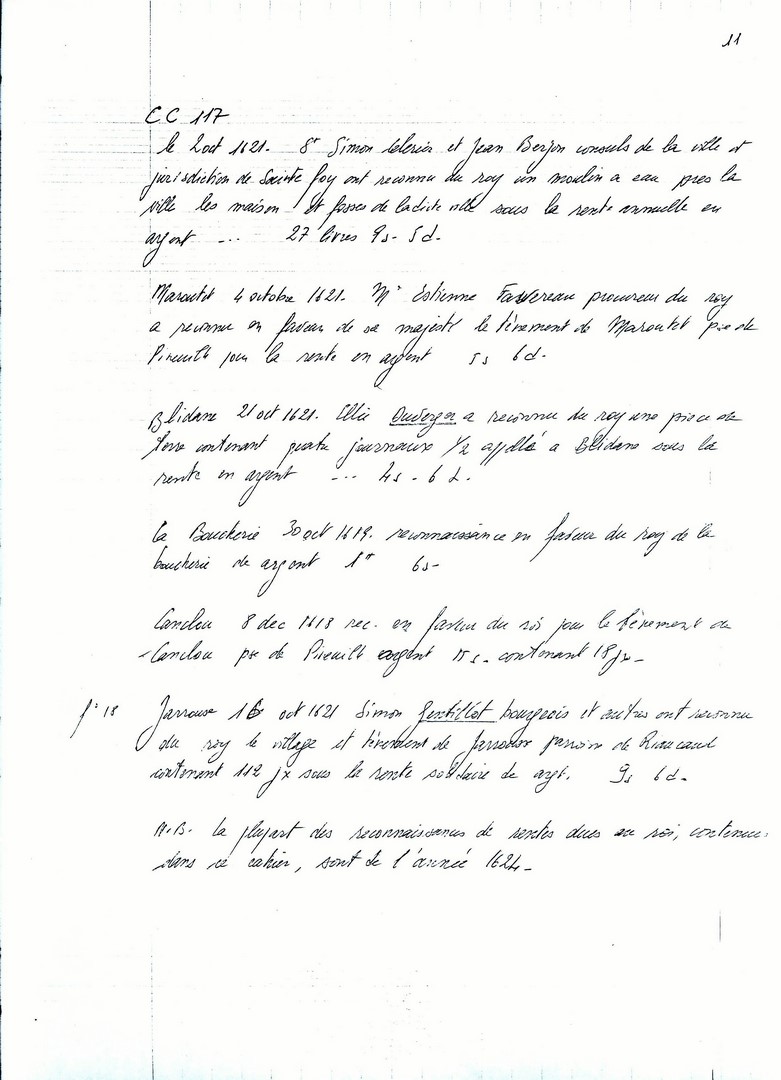 11
CC 117
le 2 oct 1621. Sr Simon et Jean Berjon consuls de la ville et
jurisdiction de Sainte foy ont reconnu du roy un moulin a eau pres la
ville les maison et fosses de ladite ville sous la rente annuelle en
argent ... 27 livres 9s. 5d.
Maroutet 4 octobre 1621. Me Estienne Favereau procureur du roy
a reconnu en faveur de sa majesté le tènement de Maroutet psse de
Pineuilh pour la rente en argent 5s 6d.
Blidane 21 oct 1621. Elie a reconnu du roy une piece de
terre contenant quatre journeaux 1/2 appellé a Blidane sous la
rente en argent ... 4s. 6d.
La Boucherie 30 oct 1619. reconnaissance en faveur du roy de la
boucherie de argent 1# 6s.
Canclou 8 dec 1618 rec. en faveur du roi pour le tènement de
Canclou psse de Pineuilh argent 15s. contenant 18 jx.
f° 18 Jarrousse 16 oct 1621 Simon Gentillot bourgeois et autres ont reconnu
du roy le village et tènement de Jarrousse parroisse de Riaucaud
contenant 112 jx sous la rente solidaire de argt. 9s 6d.
N.B. la plupart des reconnaissances de rentes dues au roi, contenues
dans ce cahier, sont de l'année 1624.